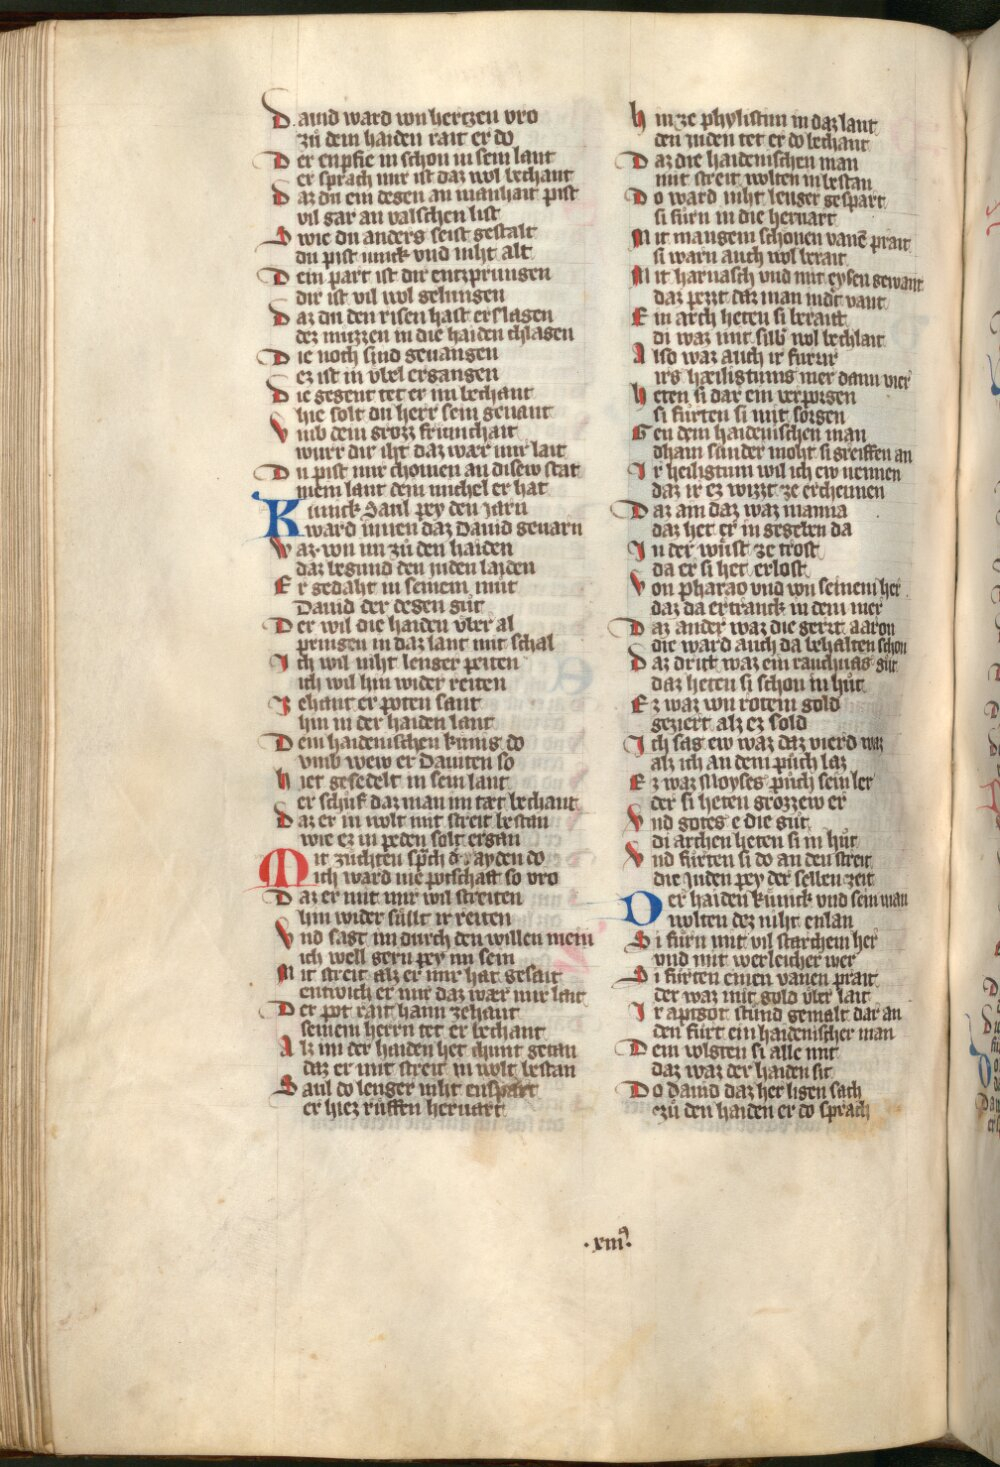 Dauid ward von hertzen vro
zů dem haiden rait er do
Der enpfie in schon in sein lant
er sprach mir ist daz wol bechant
Daz du ein degen an manhait pist
vil gar an valschen list
Swie du anders seist gestalt
du pist iunck vnd niht alt
Dein part ist dir entzprungen
dir ist vil wol gelungen
Daz du den risen hast erslagen
dez müzzen in die haiden chlagen
Die noch sind geuangen
ez ist in vbel ergangen
Die gegent tet er im bechant
hie solt du herr sein genant
Vmb dein grozz friuntchait
wurr dir iht daz wær mir lait
Du pist mir chomen an disew stat
mein lant dein michel er hat
Kunick Saul pey den iarn
ward innen daz Dauid geuarn
Waz von im zů den haiden
daz begund den iuden laiden
Er gedaht in seinem můt
Dauid der degen gůt
Der wil die haiden vber al
pringen in daz lant mit schal
Ich wil niht lenger peiten
ich wil hin wider reiten
Zehant er poten sant
hin in der haiden lant
Dem haidenischen künig do
vmb wew er Dauiten so
Hiet gesedelt in sein lant
er schůf daz man im tæt bechant
Daz er in wolt mit streit bestan
wie ez in peden solt ergan
Mit züchten sp̄ch d͛ hayden do
Mich ward nie potschaft so vro
Daz er mit mir wil streiten
hin wider süllt ir reiten
Vnd sagt im durch den willen mein
ich well gern pey im sein
Mit streit alz er mir hat gesait
entwich er mir daz wær mir lait
Der pot rait haim zehant
seinem herrn tet er bechant
Alz im der haiden het chunt getan
daz er mit streit in wolt bestan
Saul do lenger niht enspart
er hiez rüffen heruart
Hin ze phylistim in daz lant
den iuden tet er do bechant
Daz die haidenischen man
mit streit wolten in bestan
Do ward niht lenger gespart
si fürn in die heruart
Mit mangem schonen vanē prait
si warn auch wol berait
Mit harnasch vnd mit eysen gewant
daz pezzt daz man indt vant
Ein arch heten si beraitt
di waz mit silb͛ wol bechlait
Also waz auch ir furür
irs hæiligtums mer dann vier
Heten si dar ein verporgen
si fürten si mit sorgen
Gen dem haidenischen man
dhain sunder moht si greiffen an
Ir heiligtum wil ich ew nennen
daz ir ez wizzt ze erchennen
Daz ain daz waz manna
daz het er in gegeben da
In der wüst ze trost
da er si het erlost
Von pharao vnd von seinem her
daz da ertranck in dem mer
Daz ander waz die gerzt aaron
die ward auch da behalten schon
Daz dritt waz ein rauchuas gůt
daz heten si schon in hůt
Ez waz von rotem gold
geziert alz ez sold
Ich sag ew waz daz vierd waz
alz ich an dem půch laz
Ez waz Moyses půch sein ler
der si heten grozzew er
Vnd gotes e die gůt
di archen heten si in hůt
Vnd fürten si do an den streit
die iuden pey der selben zeit
Der haiden künick vnd sein man
wolten dez niht enlan
Si fürn mit vil starchem her
vnd mit werleicher wer
Si fürten einen vanen prait
der waz mit gold vber lait
Ir aptgot stůnd gemalt dar an
den fürt ein haidenischer man
Dem volgten si alle mit
daz waz der haiden sit
Do dauid daz her ligen sach
zů den haiden er do sprach
·xiiii·